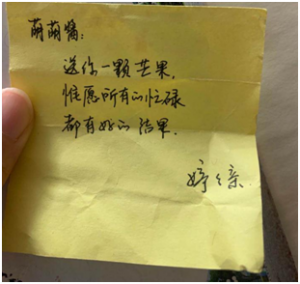 萌萌酱：
送你一颗芒果，
惟愿所有的忙碌
都有好的结果．
婷亲